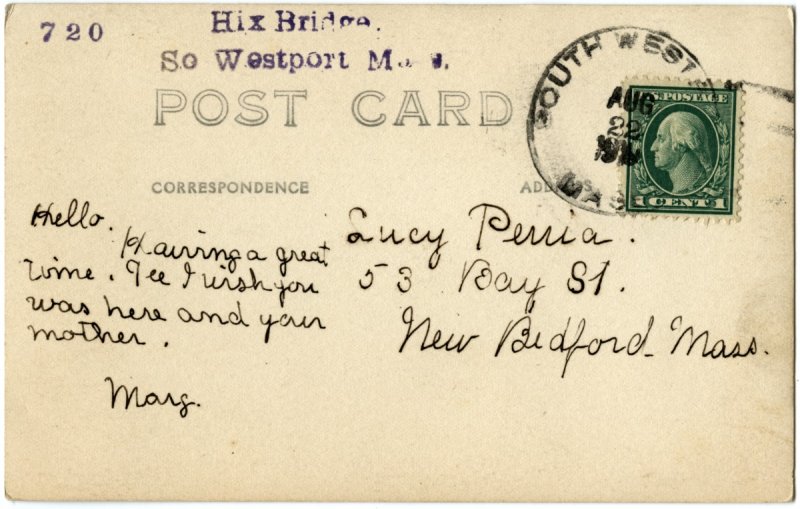 720
Hix Bridge.
So Westport Mass.
POST CARD
CORRESPONDENCE
ADDRESS
SOUTH WEST
AUG
22
MASS
U.S. POSTAGE
1 CENT 1
Hello.
Having a great
time. Gee I wish you
was here and your
mother.
Marg.
Lucy Perria.
53 Bay St.
New Bedford Mass.